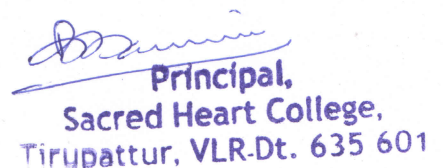 Principal,
Sacred Heart College,
Tirupattur, VLR-Dt. 635 601